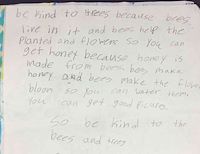 be kind to trees because bees
live in it and bees help the
Planted and flowers so you can
get honey because honey is
made from bees bees make
honey and bees make the flowers
bloom so you can water them
you can get good
So be kind to the
bees and trees